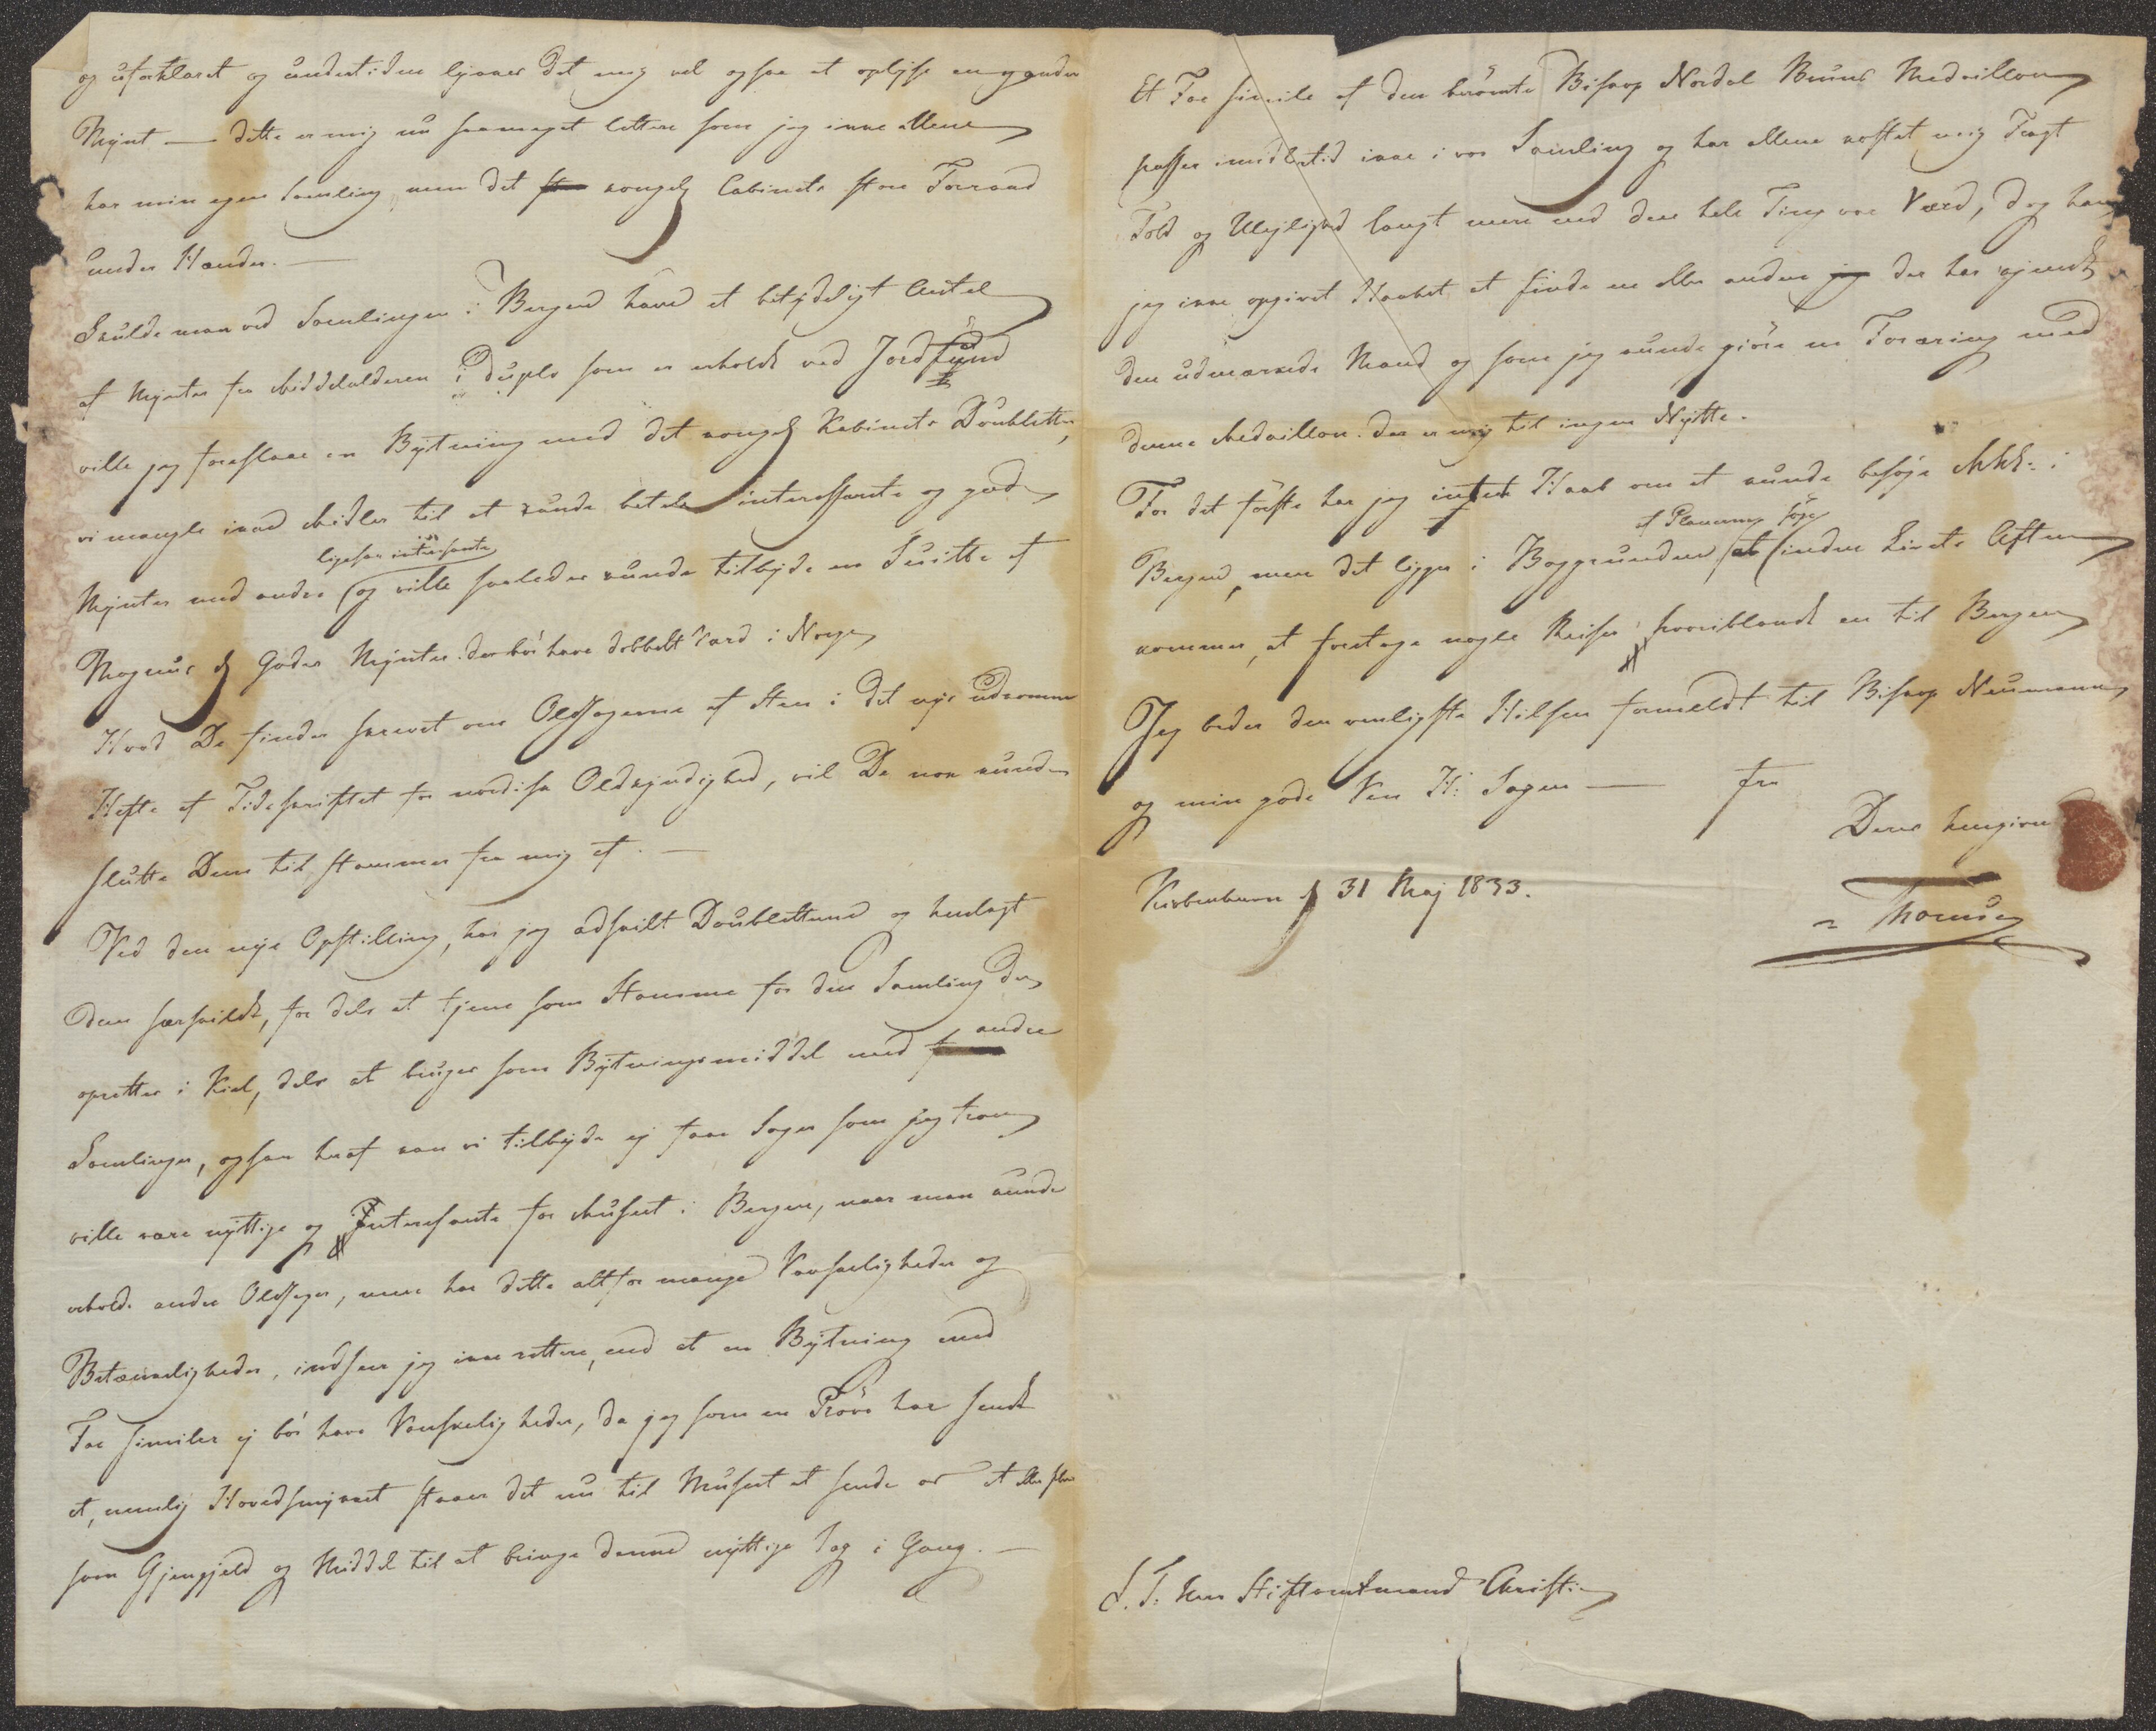 og uforklaret og undertiden lykkes det mig vel ogsaa at oplyse en og anden
Mynt — dette er mig nu saameget lettere som jeg ikke allene
har min egen Samling, men det kongelig Cabinets store Forraad
under Hænder. —
Skulde man ved Samlingen i Bergen have et betydeligt Antal
af Mynter fra Middelalderen i duplo som er erholdt ved Jordfund
ville jeg foreslaae en Bytning med det kongelig Kabinets Doubletter,
vi mangle ikke Midler til at kunde betale interessante og gode
ligesaa interssante
Mynter med andre og ville saaledes kunde tilbyde en Suitte af
Magnus d Godes Mynter. der bör have dobbelt Værd i Norge
Hvad De finder skrevet om Oldsagerne af Steen i det nye udkomne
Hefte af Tidsskriftet for nordisk Oldkyndighed, vil De nok kunde
slutte Dem til, stammer fra mig af. —
Ved den nye Opstilling, har jeg adskilt Doubletterne og henlagt
dem særskildt, for dels at tjene som Stamme for den Samling der
oprettes i Kiel, dels at bruges som Bytningsmiddel med andre
Samlinger, ogsaa heraf kan vi tilbyde ej faae Sager som jeg troer
ville være nyttige og Interesante for Museet i Bergen, naar man kunde
erholde andre Oldsager, men har dette altfor mange Vanskeligheder og
Betænkeligheder, indseer jeg ikke rettere, end at en Bytning med
Fac similer ej bör have Vanskeligheder, da jeg som en Pröve har sendt
et, nemlig Hovedsmykket staaer det nu til Museet at sende os et eller flere
som Gjengjeld og Middel til at bringe denne nyttige Sag i Gang. —
Et Fac simile af den berömte Biskop Nordal Bruns Medaillon
passer imidlertid ikke i vor Samling og har allene kostet mig Fragt
Told og Uleylighed langt mere end den hele Ting var Værd, dog har
jeg ikke opgivet Haabet at finde en eller anden der har kjendt
den udmærkede Mand og som jeg kunde giöre en Foræring med
denne Medaillon. der er mig til ingen Nytte.
For det förste har jeg intet Haab om at kunde besöge
af Planerne
Bergen, men det ligger i Baggrunden inden Livets Aften
kommer, at foretage nogle Reiser hvoriblandt en til Bergen
Jeg beder den venligste Hilsen formeldt til Biskop Neumann
og min gode Ven H: Sagen — fra
Deres hengivne
Thomsen
Kiöbenhavn d 31 Maj 1833.
S. T. Herr Stiftamtmand Christie